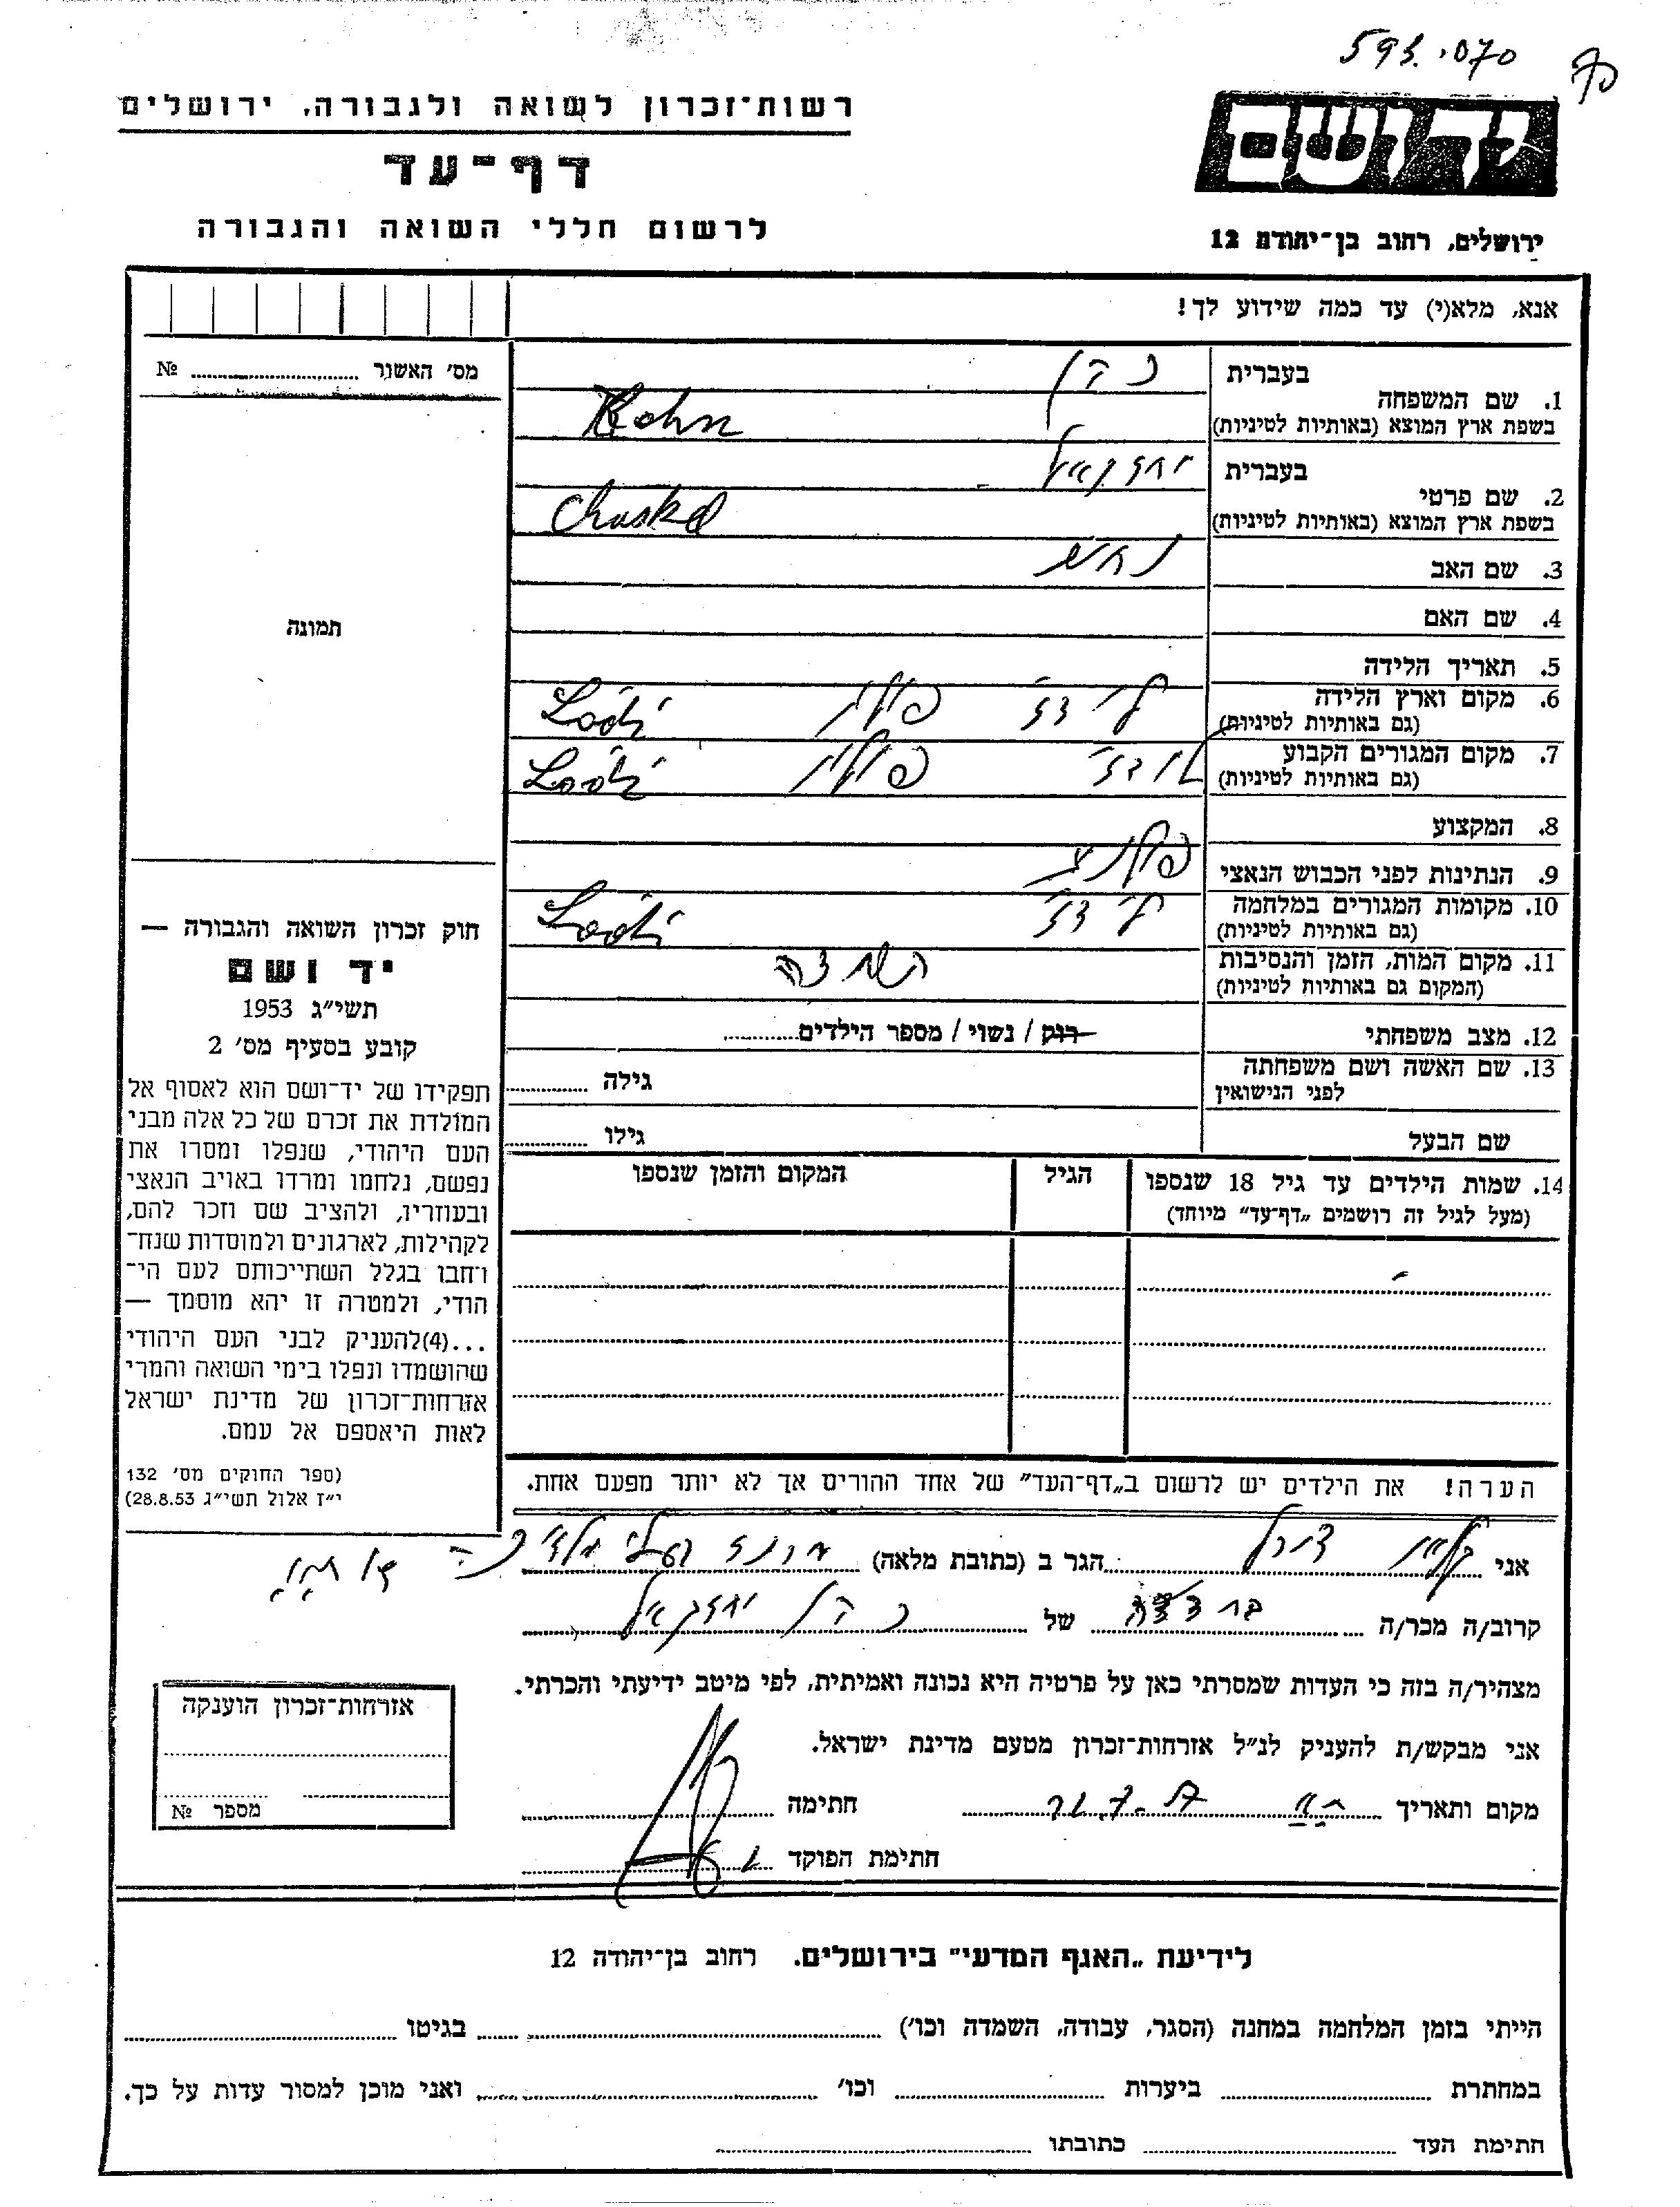 593.070
רשות־זכרון לשואה ולגבורה, ירושלים
דף־עד
לרשום חללי השואה והגבורה
יד ושם
ירושלים, רחוב בן־יהודה 12
אנא, מלא(י) עד כמה שידוע לך!
מס׳ האשור .......... №
בעברית כהן
1. שם המשפחה
בשפת ארץ המוצא (באותיות לטיניות) Kohn
בעברית יחזקאל
2. שם פרטי
בשפת ארץ המוצא (באותיות לטיניות) Chaskel
3. שם האב
4. שם האם
5. תאריך הלידה
6. מקום וארץ הלידה לודז׳ פולין Łódź
(גם באותיות לטיניות)
7. מקום המגורים הקבוע לודז׳ פולין Łódź
(גם באותיות לטיניות)
8. המקצוע
9. הנתינות לפני הכבוש הנאצי פולנית
10. מקומות המגורים במלחמה לודז׳ Łódź
(גם באותיות לטיניות)
11. מקום המות, הזמן והנסיבות
(המקום גם באותיות לטיניות)
12. מצב משפחתי רוק / נשוי / מספר הילדים..........
13. שם האשה ושם משפחתה גילה ..........
לפני הנישואין
שם הבעל גילו ..........
14. שמות הילדים עד גיל 18 שנספו הגיל המקום והזמן שנספו
(מעל לגיל זה רושמים „דף־עד״ מיוחד)
הערה! את הילדים יש לרשום ב„דף־העד״ של אחד ההורים אך לא יותר מפעם אחת.
תמונה
חוק זכרון השואה והגבורה —
יד ושם
תשי״ג 1953
קובע בסעיף מס׳ 2
תפקידו של יד־ושם הוא לאסוף אל
המולדת את זכרם של כל אלה מבני
העם היהודי, שנפלו ומסרו את
נפשם, נלחמו ומרדו באויב הנאצי
ובעוזריו, ולהציב שם וזכר להם,
לקהילות, לארגונים ולמוסדות שנח־
רחבו בגלל השתייכותם לעם הי־
הודי, ולמטרה זו יהא מוסמך —
...(4)להעניק לבני העם היהודי
שהושמדו ונפלו בימי השואה והמרי
אזרחות־זכרון של מדינת ישראל
לאות היאספם אל עמם.
(ספר החוקים מס׳ 132
י״ז אלול תשי״ג 28.8.53)
אני .......... הגר ב (כתובת מלאה) ..........
קרוב/ה מכר/ה .......... של כהן יחזקאל
מצהיר/ה בזה כי העדות שמסרתי כאן על פרטיה היא נכונה ואמיתית, לפי מיטב ידיעתי והכרתי.
אני מבקש/ת להעניק לנ״ל אזרחות־זכרון מטעם מדינת ישראל.
מקום ותאריך .......... חתימה ..........
חתימת הפוקד ..........
אזרחות־זכרון הוענקה
מספר №
לידיעת „האגף המדעי״ בירושלים. רחוב בן־יהודה 12
הייתי בזמן המלחמה במחנה (הסגר, עבודה, השמדה וכו׳) .......... בגיטו ..........
במחתרת .......... ביערות .......... וכו׳ .......... ואני מוכן למסור עדות על כך.
חתימת העד .......... כתובתו ..........